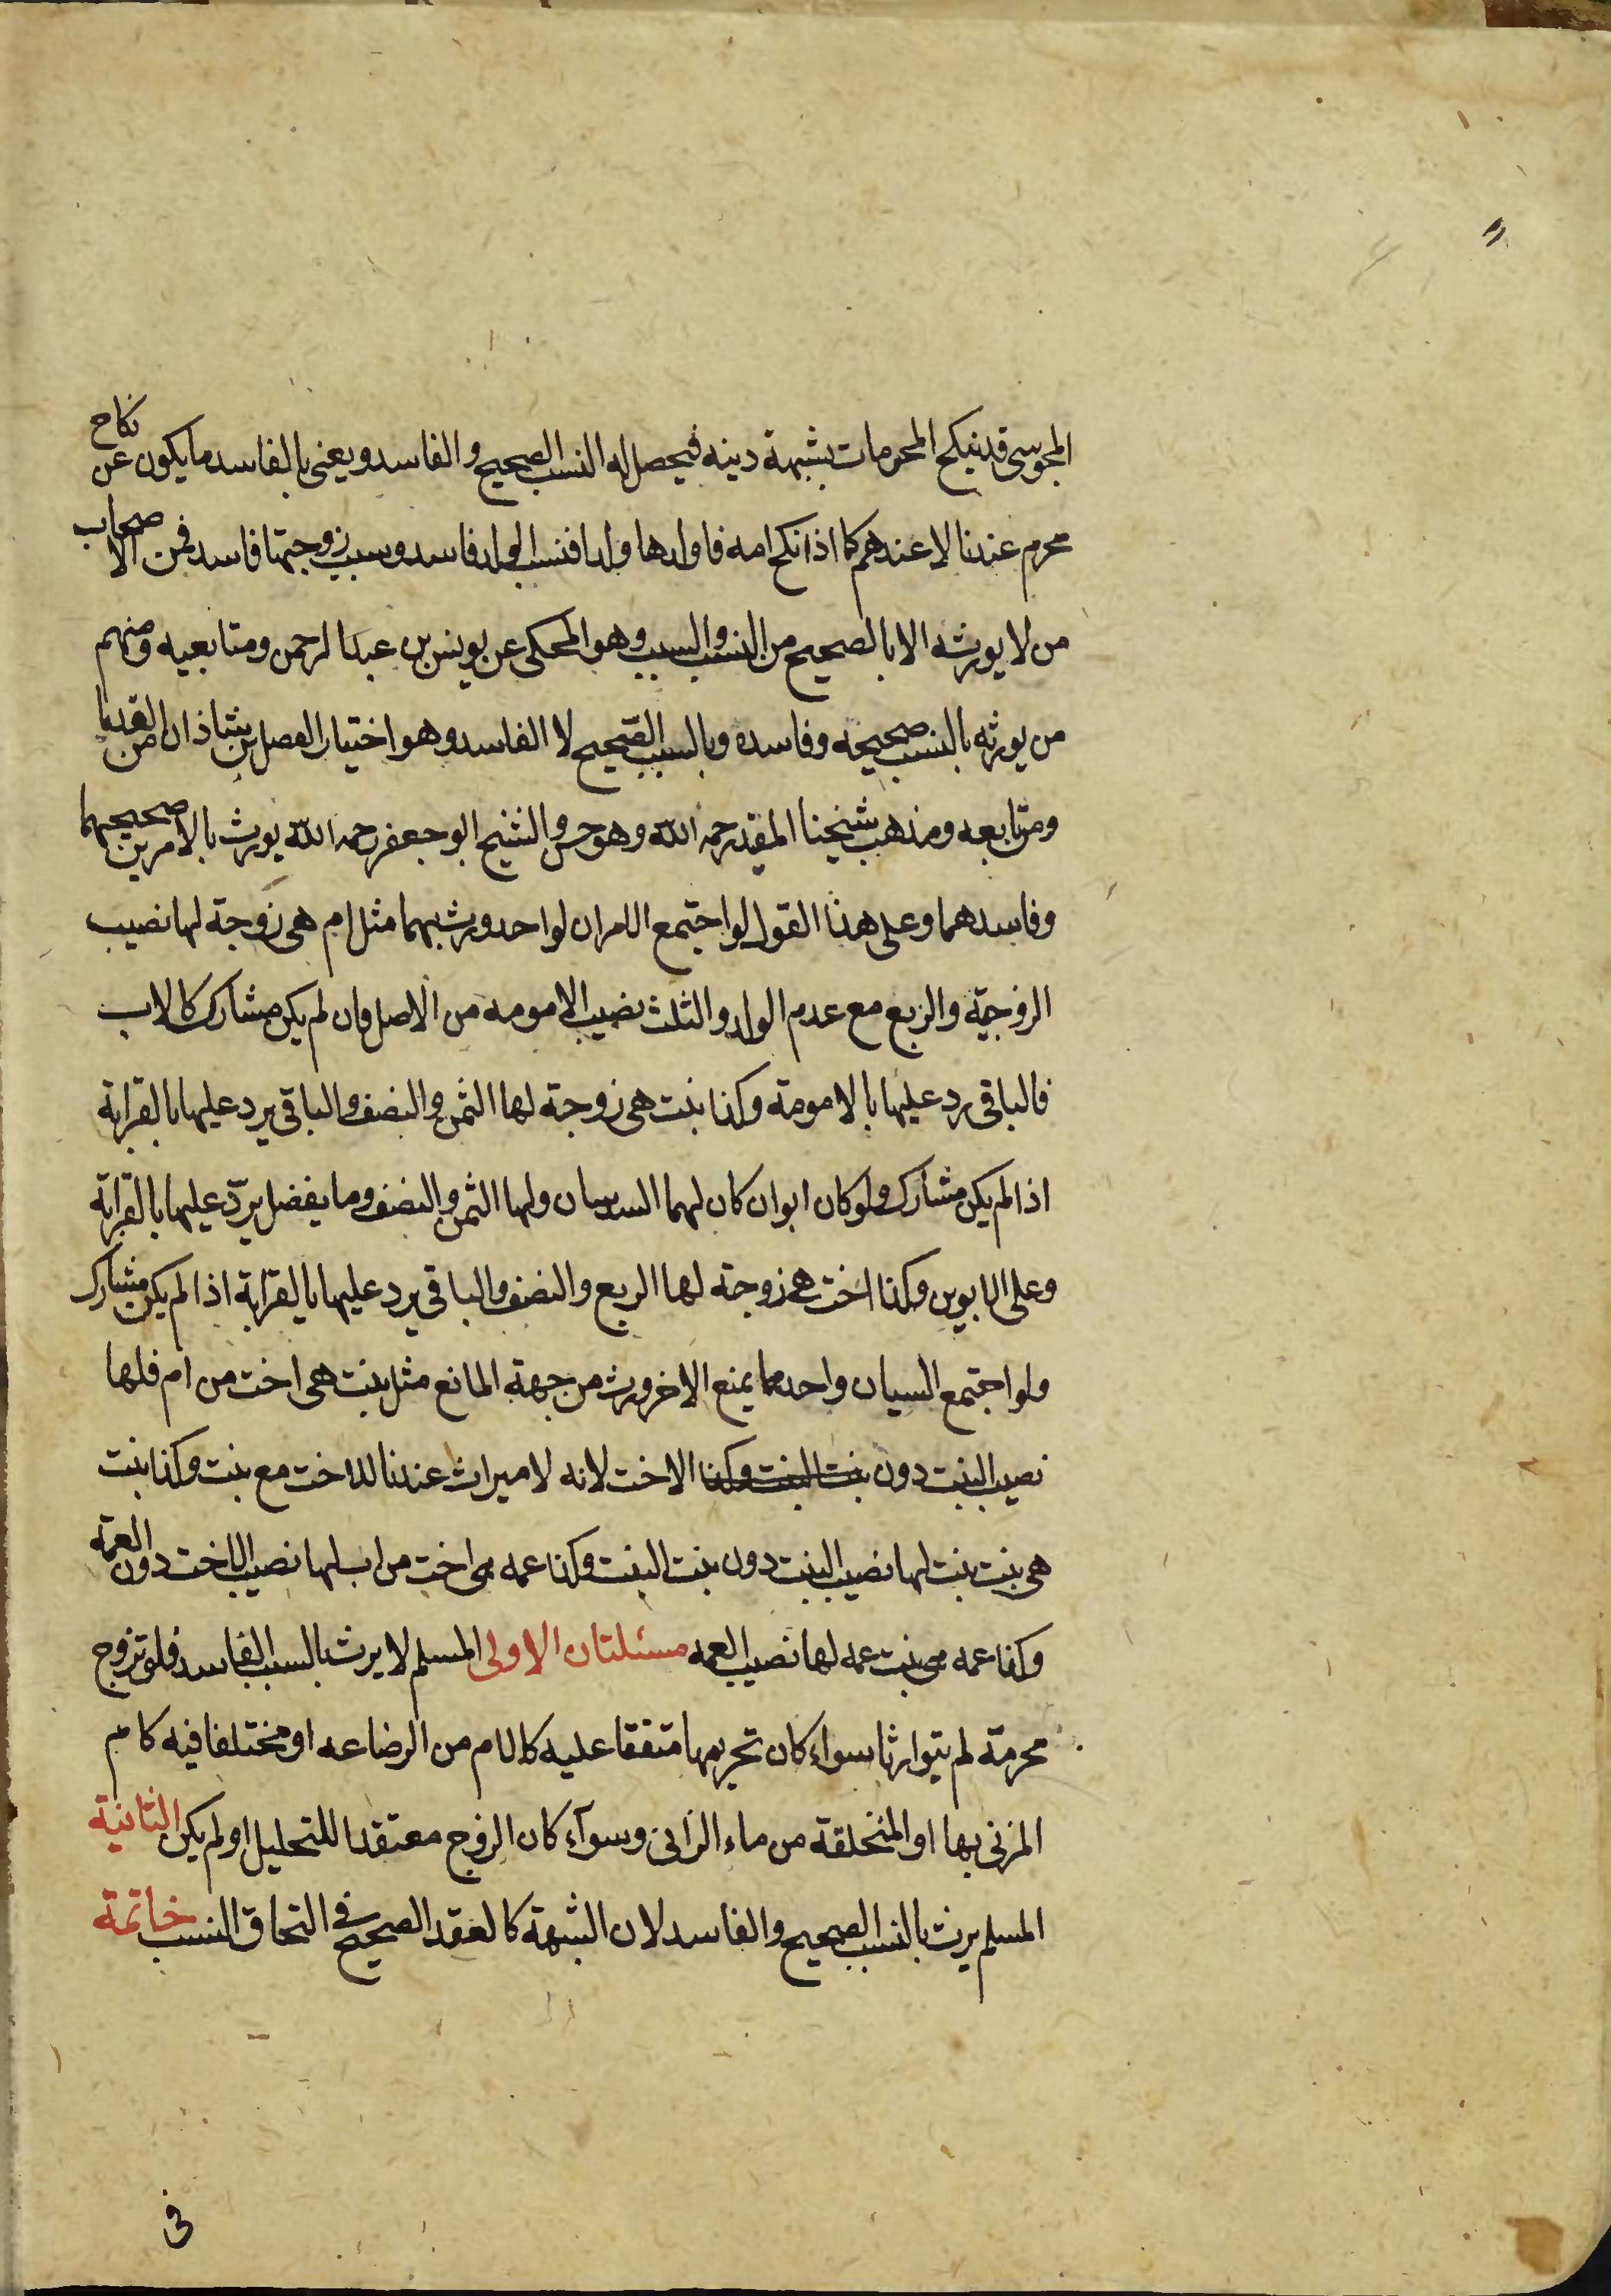 المجوسي قد ينكح المحرمات بشبهة دينه فيحصل له النسب الصحيح والفاسد ويعنى بالفاسد ما يكون عن نكاح
محرم عندنا لا عندهم كما اذا نكح امه فاولدها ولدا فنسب الولد فاسد وسبب زوجيتها فاسد فمن الاصحاب
من لا يورثه الا بالصحيح من النسب والسبب وهو المحكى عن يونس بن عبد الرحمن ومتابعيه ومنهم
من يورثه بالنسب صحيحه وفاسده وبالسبب الصحيح لا الفاسد وهو اختيار الفضل بن شاذان من القدما
ومن تابعه ومذهب شيخنا المفيد رحمه الله وهو حسن والشيخ ابو جعفر رحمه الله يورث بالامرين صحيحهما
وفاسدهما وعلى هذا القول لو اجتمع الامران لواحد ورث بهما مثل ام هى زوجة لها نصيب
الزوجيّة والربع مع عدم الولد والثلث نصيب الامومه من الاصل فان لم يكن مشارك كالاب
فالباقى رد عليها بالامومة وكذا بنت هى زوجة لها الثمن والنصف والباقى يرد عليها بالقرابة
اذا لم يكن مشارك ولو كان ابوان كان لهما السدسان ولها الثمن والنصف وما يفضل يردّ عليها بالقرابة
وعلى الابوين وكذا اخت هى زوجة لها الربع والنصف والباقى يرد عليها بالقرابة اذا لم يكن مشارك
ولو اجتمع السببان واحدهما يمنع الاخر ورث من جهة المانع مثل بنت هى اخت من ام فلها
نصيب البنت دون بنت البنت وكذا الاخت لانه لا ميراث عندنا للاخت مع بنت وكذا بنت
هى بنت بنت لها نصيب البنت دون بنت البنت وكذا عمه هى اخت من اب لها نصيب الاخت دون العمة
وكذا عمه هى بنت عمه لها نصيب العمه مسئلتان الاولى المسلم لا يرث بالسبب الفاسد فلو تزوج
محرمة لم يتوارثا سواء كان تحريمها متفقا عليه كالام من الرضاعه او مختلفا فيه كام
المزنى بها او المتخلقة من ماء الزانى وسوآء كان الزوج معتقدا للتحليل او لم يكن الثانية
المسلم يرث بالنسب الصحيح والفاسد لان الشبهة كالعقد الصحيح فى التحاق النسب خاتمة
فى